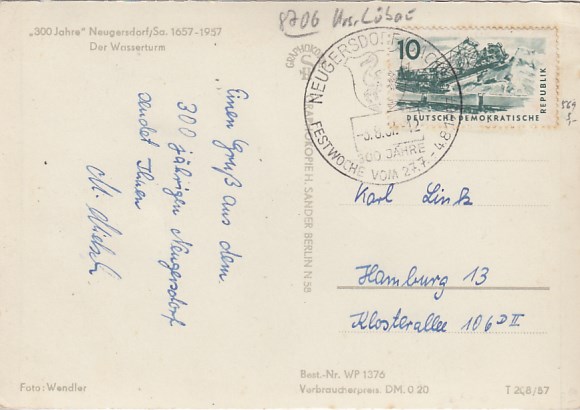 8706 Krs. Löbau
„300 Jahre" Neugersdorf/Sa. 1657-1957
Der Wasserturm
Einen Gruß aus dem
300 jährigen Neugersdorf
sendet Ihnen
M.
Foto: Wendler
GRAPHOKOPIE H. SANDER BERLIN N 58
NEUGERSDORF (SACHS)
-3.8.57-12
300 JAHRE
FESTWOCHE VOM 27.7.-4.8.
10
DEUTSCHE DEMOKRATISCHE
REPUBLIK
569
Karl Link
Hamburg 13
Klosterallee 106 D II
Best.-Nr. WP 1376
Verbraucherpreis. DM. 0 20
T 208/57